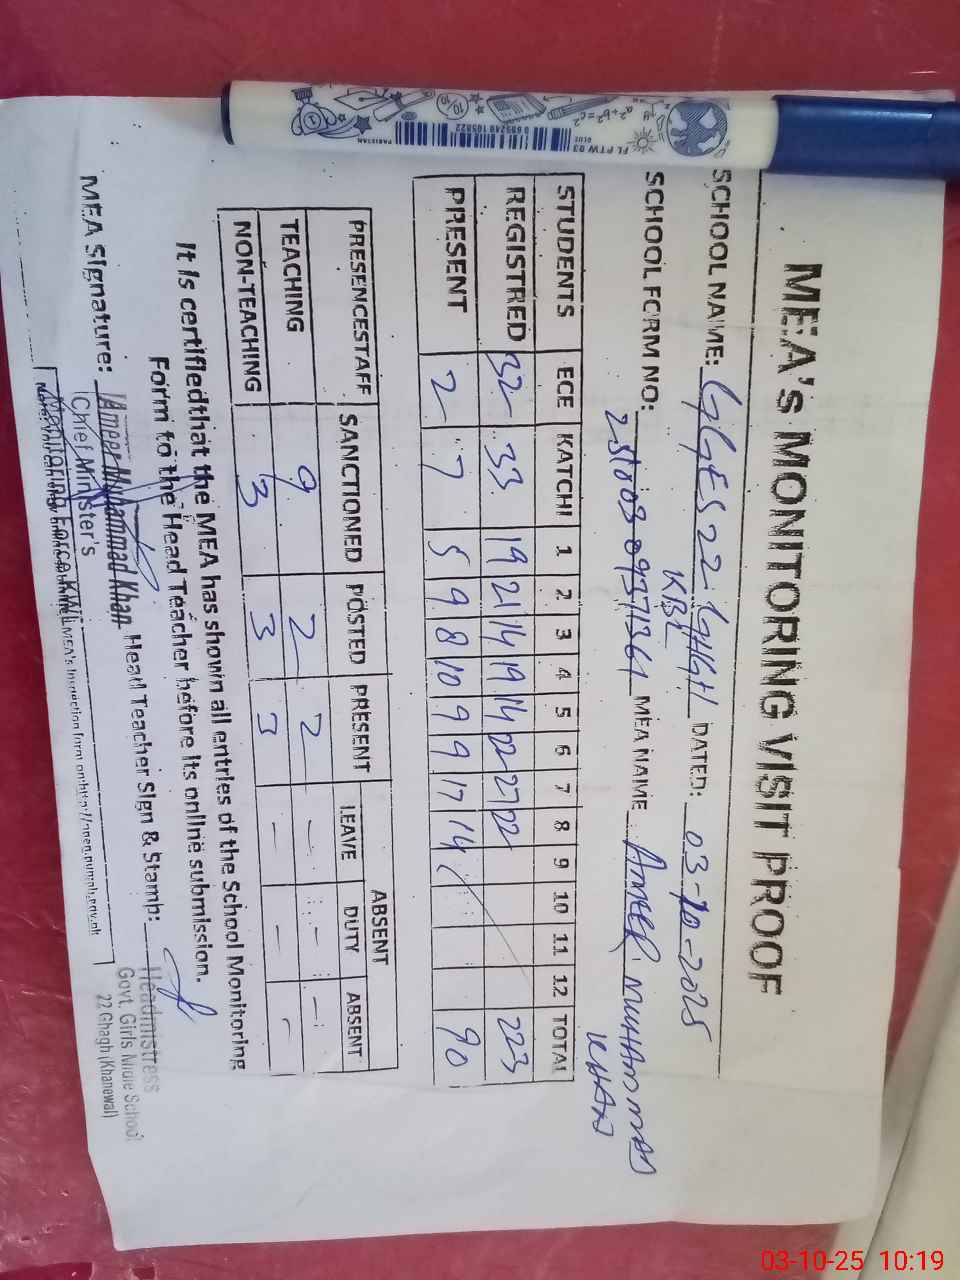 MEA's MONITORING VISIT PROOF
SCHOOL NAME: GGES 22-GHGH DATED: 03-10-2025
KBL
SCHOOL FORM NO: MEA NAME AMEER MUHAMMAD
KHAN
STUDENTS ECE KATCHI 1 2 3 4 5 6 7 8 9 10 11 12 TOTAL
REGISTRED 32 33 19 21 14 19 14 22 27 22 223
PRESENT 2 7 5 9 8 10 9 9 17 14 90
ABSENT
PRESENCESTAFF SANCTIONED POSTED PRESENT LEAVE DUTY ABSENT
TEACHING 9 2 2 - - -
NON-TEACHING 3 3 3 - - -
It is certifiedthat the MEA has shown all entries of the School Monitoring
Form to the Head Teacher before its online submission.
MEA Signature: Ameer Muhammad Khan Head Teacher Sign & Stamp:
Chief Minister's
Monitoring Force KWL
MEA's Inspection form on
Headmistress
Govt. Girls Midle School
22 Ghagh (Khanewal)
PAKISTAN
BLUE
FL PTW 03
a²+b²=c²
10/10
03-10-25 10:19